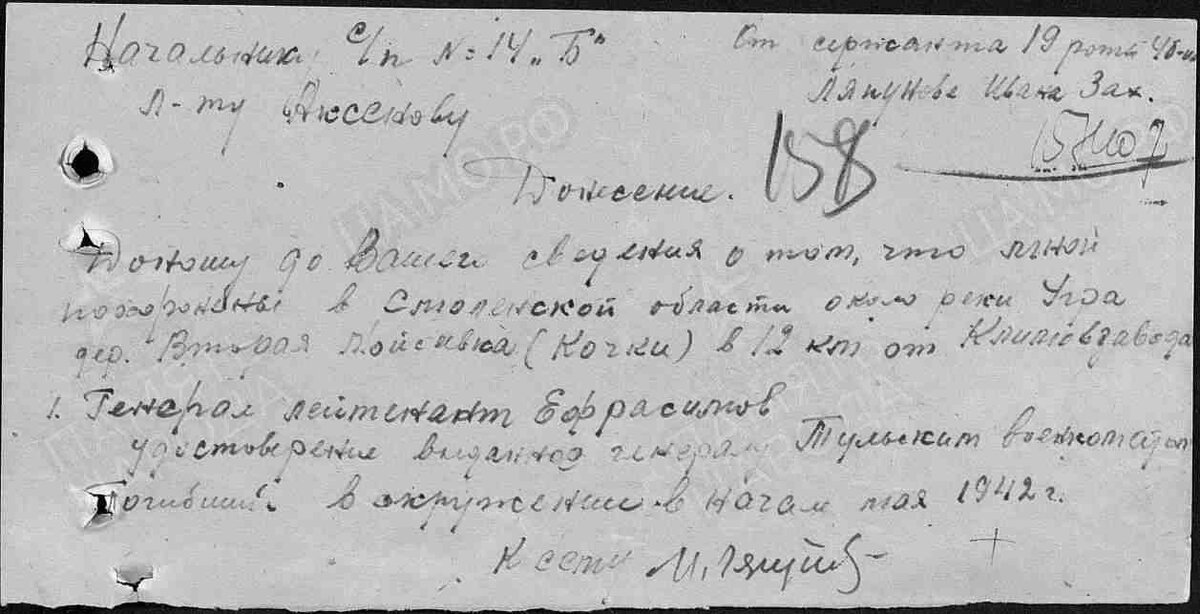 Начальнику с/п №14 „Б"
От сержанта 19 роты 4 б-на
Л-ту Аксенову
Ляпунова Ивана Зах.
158
Доносение.
Доношу до Вашего сведения о том, что мной
похоронены в Смоленской области около реки Угра
дер. Вторая (Кочки) в 12 км от Климовзавода
1. Генерал лейтенант Ефрасимов
удостоверение выданное генералу Тульским военкоматом
Погибший в окружении в начале мая 1942 г.
К сему
ПАМЯТЬ НАРОДА
ЦАМО.РФ